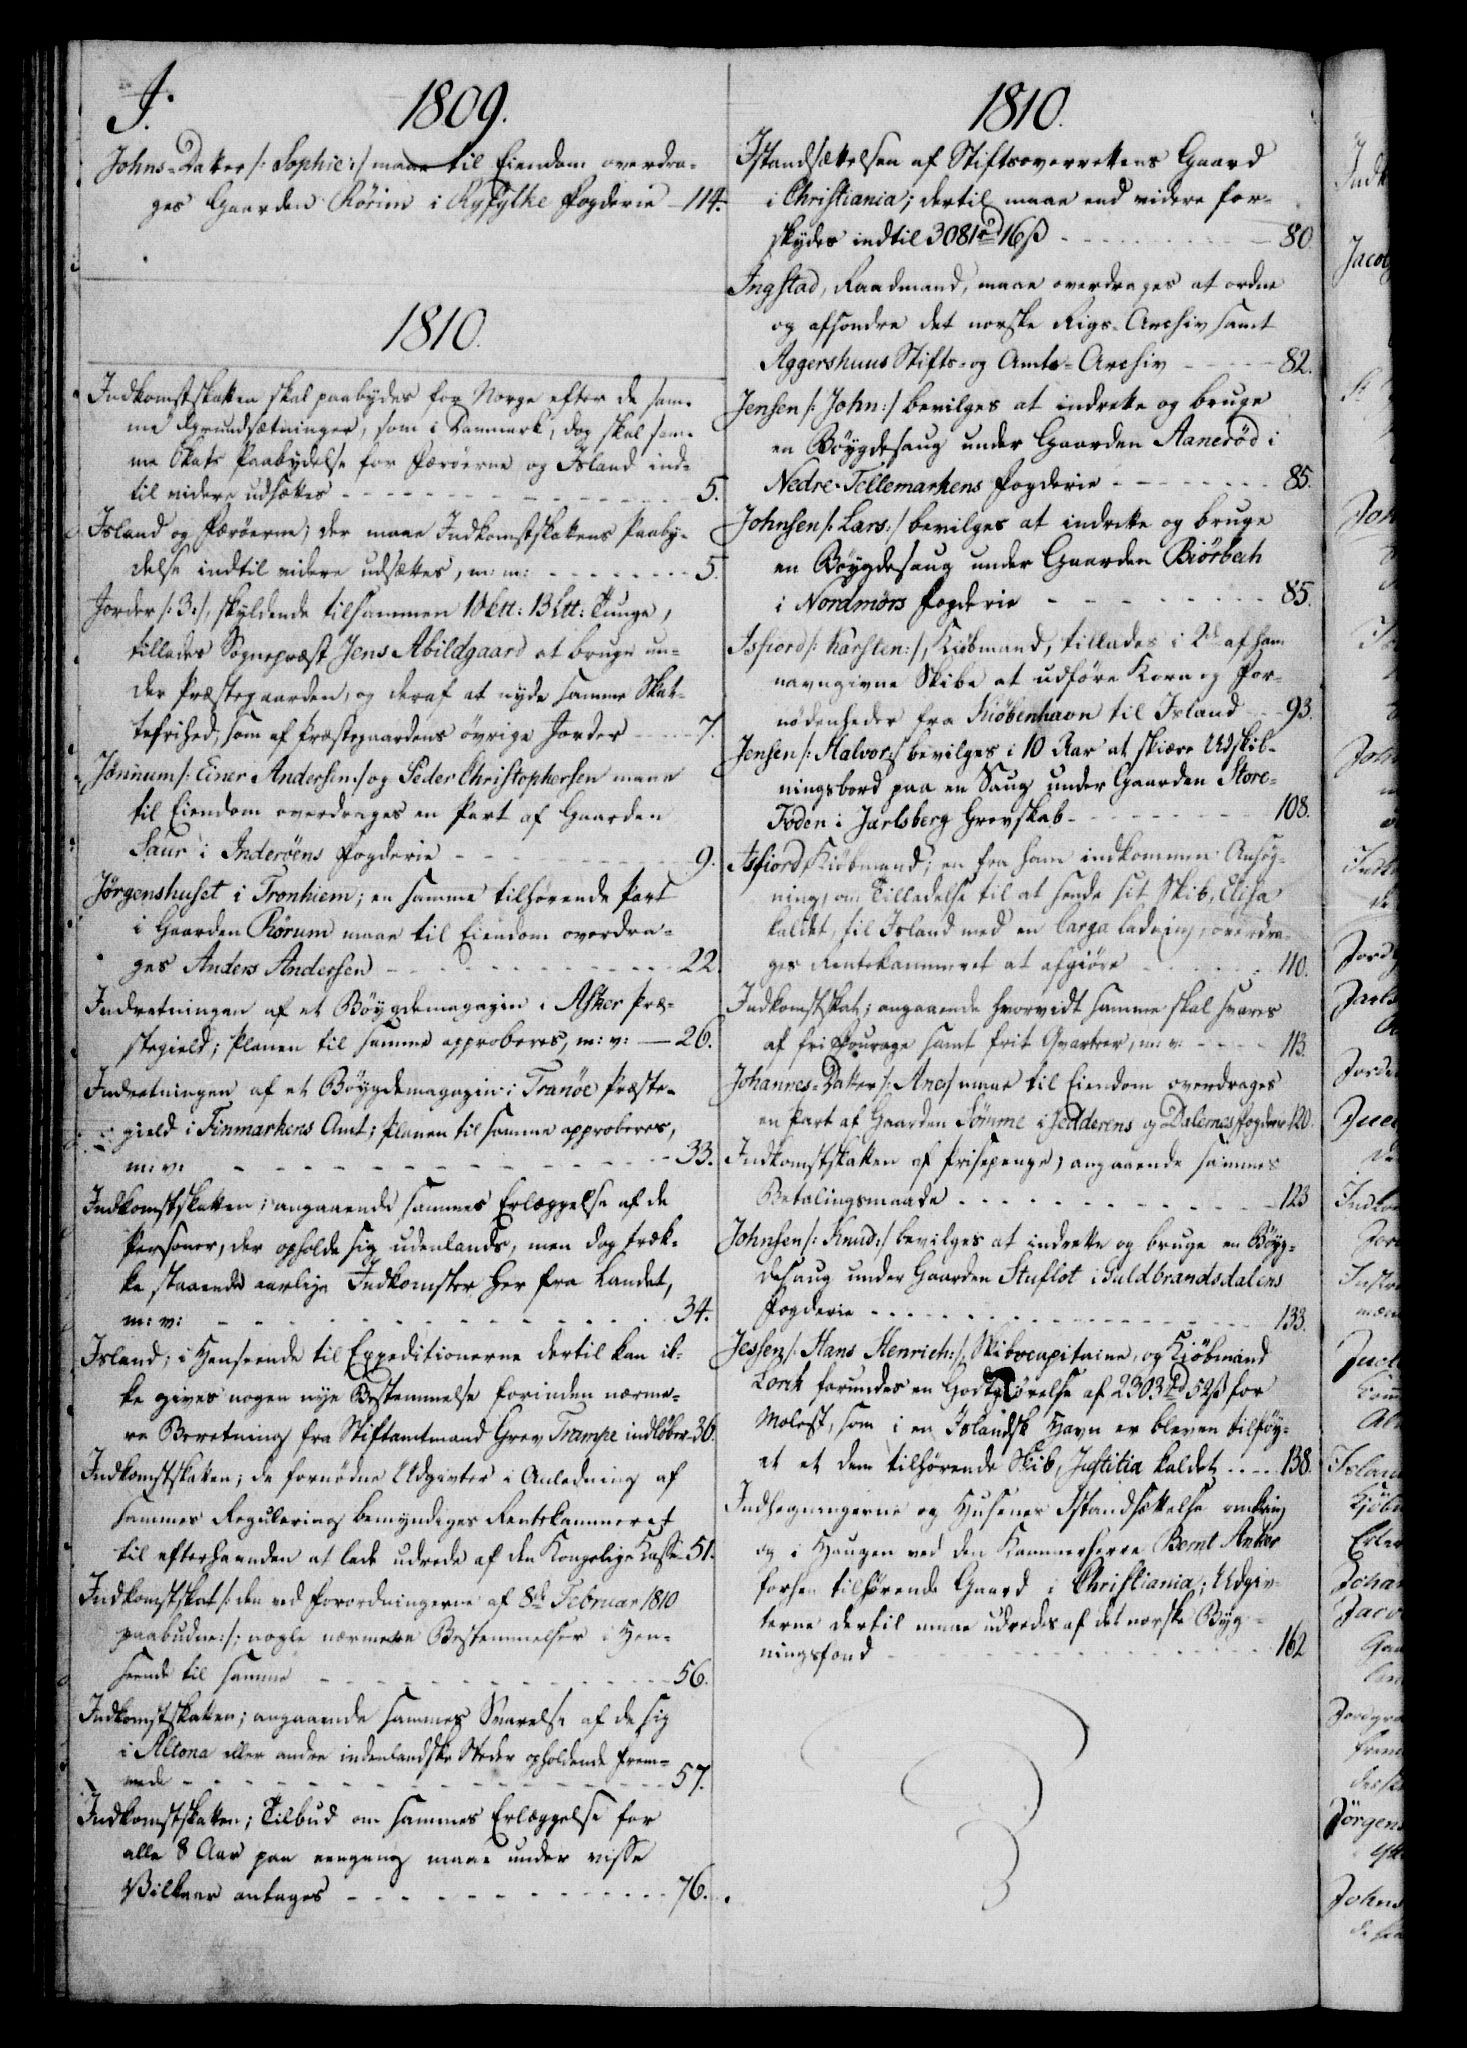 J.
1809.
Johns-Datter /: Sophie :/ maae til Eiendom overdra-
ges Gaarden Rörim i Ryfylke Fogderie 114.
1810.
Indkomstskatten skal paabydes for Norge efter de sam-
me Grundsætninger, som i Danmark, dog skal sam-
me Skats Paabydelse for Færöerne og Island ind-
til videre udsættes 5.
Island og Færöerne; der maae Indkomstskattens Paaby-
delse indtil videre udsættes, m: m: 5.
Jorder /: 3 :/, skyldende tilsammen
tillades Sognepræst Jens Abildgaard at bruge un-
der Præstegaarden, og deraf at nyde samme Skat-
tefrihed, som af Præstegaardens övrige Jorder 7.
Jönnum /: Einer Andersen :/ og Peder Christophersen maae
til Eiendom overdrages en Part af Gaarden
Saur i Inderöens Fogderie 9.
Jörgenshuset i Tronhiem; en samme tilhörende Part
i Gaarden Rörum maae til Eiendom overdra-
ges Anders Andersen 22.
Indretningen af et Böygdemagazin i Asker Præ-
stegield; Planen til samme approberes, m: v: 26.
Indretningen af et Böygdemagazin i Tranöe Præste-
gield i Finmarkens Amt; Planen til samme approberes,
m: v: 33.
Indkomstskatten; angaaende sammes Erlæggelse af de
Personer, der opholde sig udenlands, men dog træk-
ke staaende aarlige Indkomster her fra Landet,
m: v: 34.
Island; i Henseende til Expeditionerne dertil kan ik-
ke gives nogen nye Bestemmelse forinden nærme-
re Beretning fra Stiftamtmand Grev Trampe indlöber 36.
Indkomstskatten; de fornödne Udgivter i Anledning af
sammes Regulering bemyndiges Rentekammeret
til efterhaanden at lade udrede af den Kongelige Kasse 51.
Indkomstskat /: den ved Forordningerne af 8de Februar 1810
paabudne :/; nogle nærmere Bestemmelser i Hen-
seende til samme 56.
Indkomstskatten; angaaende sammes Svarelse af de sig
i Altona eller andre indenlandske Steder opholdende Frem-
mede 57.
Indkomstskatten; Tilbud om sammes Erlæggelse for
alle 8 Aar paa eengang maae under visse
Vilkaar antages 76.
1810.
Istandsættelsen af Stiftsoverrettens Gaard
i Christiania; dertil maae end videre for-
skydes indtil 3081 rd 16 ß 80
Ingstad, Raadmand, maae overdrages at ordne
og afsondre det norske Rigs-Archiv samt
Aggershuus Stifts- og Amts-Archiv 82.
Jensen /: John :/ bevilges at indrette og bruge
en Böygdesaug under Gaarden Aaneröd i
Nedre-Tellemarkens Fogderie 85.
Johnsen /: Lars :/ bevilges at indrette og bruge
en Böygdesaug under Gaarden Biörbech
i Nordmörs Fogderie 85.
Isfiord /: Karsten :/, Kiöbmand, tillades i 2de af ham
navngivne Skibe at udföre Korn og For-
nödenheder fra Kiöbenhavn til Island 93.
Jensen /: Halvor :/ bevilges i 10 Aar at skiære Udskib-
ningsbord paa en Saug under Gaarden Store-
Foden i Jarlsberg Grevskab 108.
Isfiord, Kiöbmand; en fra ham indkommen Ansög-
ning, om Tilladelse til at sende sit Skib, Elisa
kaldet, til Island med en Carga Ladning, overdra-
ges Rentekammeret at afgiöre 110.
Indkomstskat; angaaende hvorvidt samme skal svares
af fri Fourage samt frit Qvarteer, m: v: 113.
Johannes-Datter /: Ane :/ maae til Eiendom overdrages
en Part af Gaarden Sömme i Jedderens og Dalernes Fogderie 120.
Indkomstskatten af Prisepenge, angaaende sammes
Betalingsmaade 123
Johnsen /: Knud :/ bevilges at indrette og bruge en Böyg-
desaug under Gaarden Stuflot i Guldbrandsdalens
Fogderie 133.
Jessen /: Hans Henrich :/, Skibscapitaine, og Kiöbmand
Lorck forundes en Godtgiörelse af 2303 rd 52 ß for
Molest, som i en Islandsk Havn er bleven tilföy-
et et dem tilhörende Skib, Justitia kaldet 138.
Indhegningerne og Husenes Istandsættelse omkring
og i Haugen ved den Kammerherre Bernt Anker
forhen tilhörende Gaard i Christiania; Udgiv-
terne dertil maae udredes af det norske Byg-
ningsfond 162